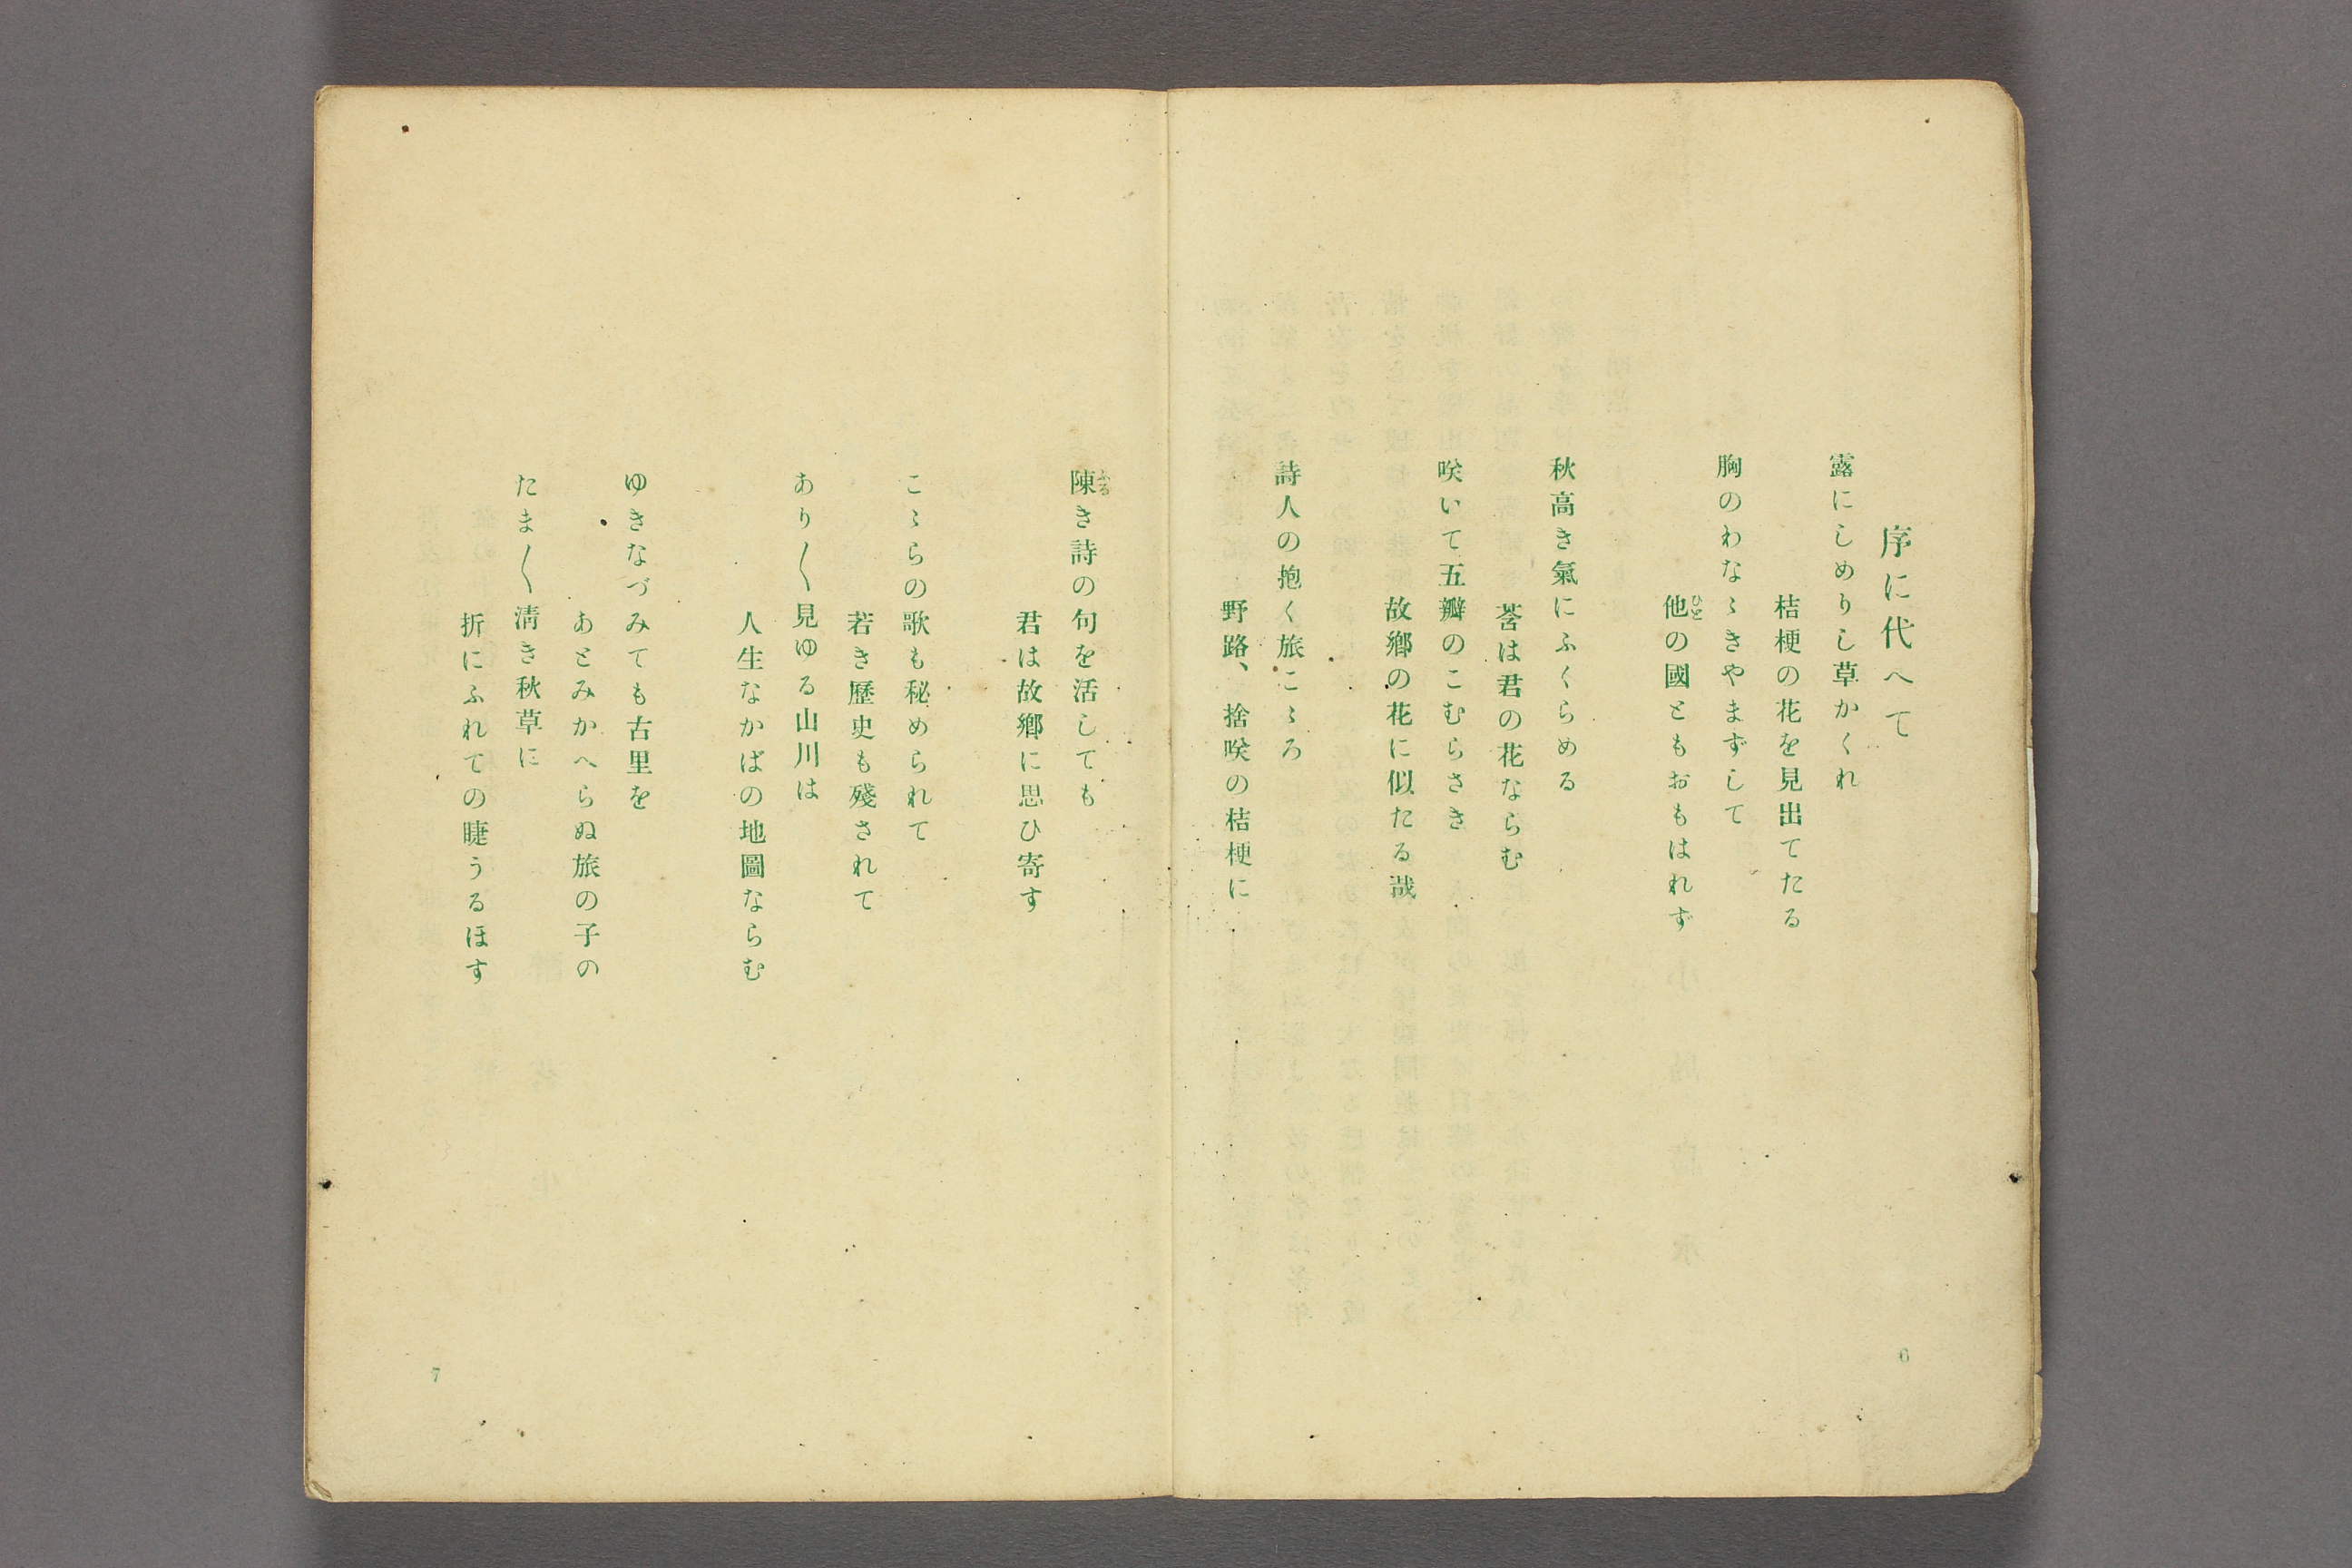 序に代へて
露にしめりし草かくれ
桔梗の花を見出てたる
胸のわなゝきやまずして
他の國ともおもはれず
ひと
秋高き氣にふくらめる
莟は君の花ならむ
咲いて五瓣のこむらさき
故鄕の花に似たる哉
詩人の抱く旅こゝろ
野路、捨咲の桔梗に
6
陳き詩の句を活しても
ふる
君は故鄕に思ひ寄す
こゝらの歌も秘められて
若き歷史も殘されて
あり〱見ゆる山川は
人生なかばの地圖ならむ
ゆきなづみても古里を
あとみかへらぬ旅の子の
たま〱淸き秋草に
折にふれての睫うるほす
7